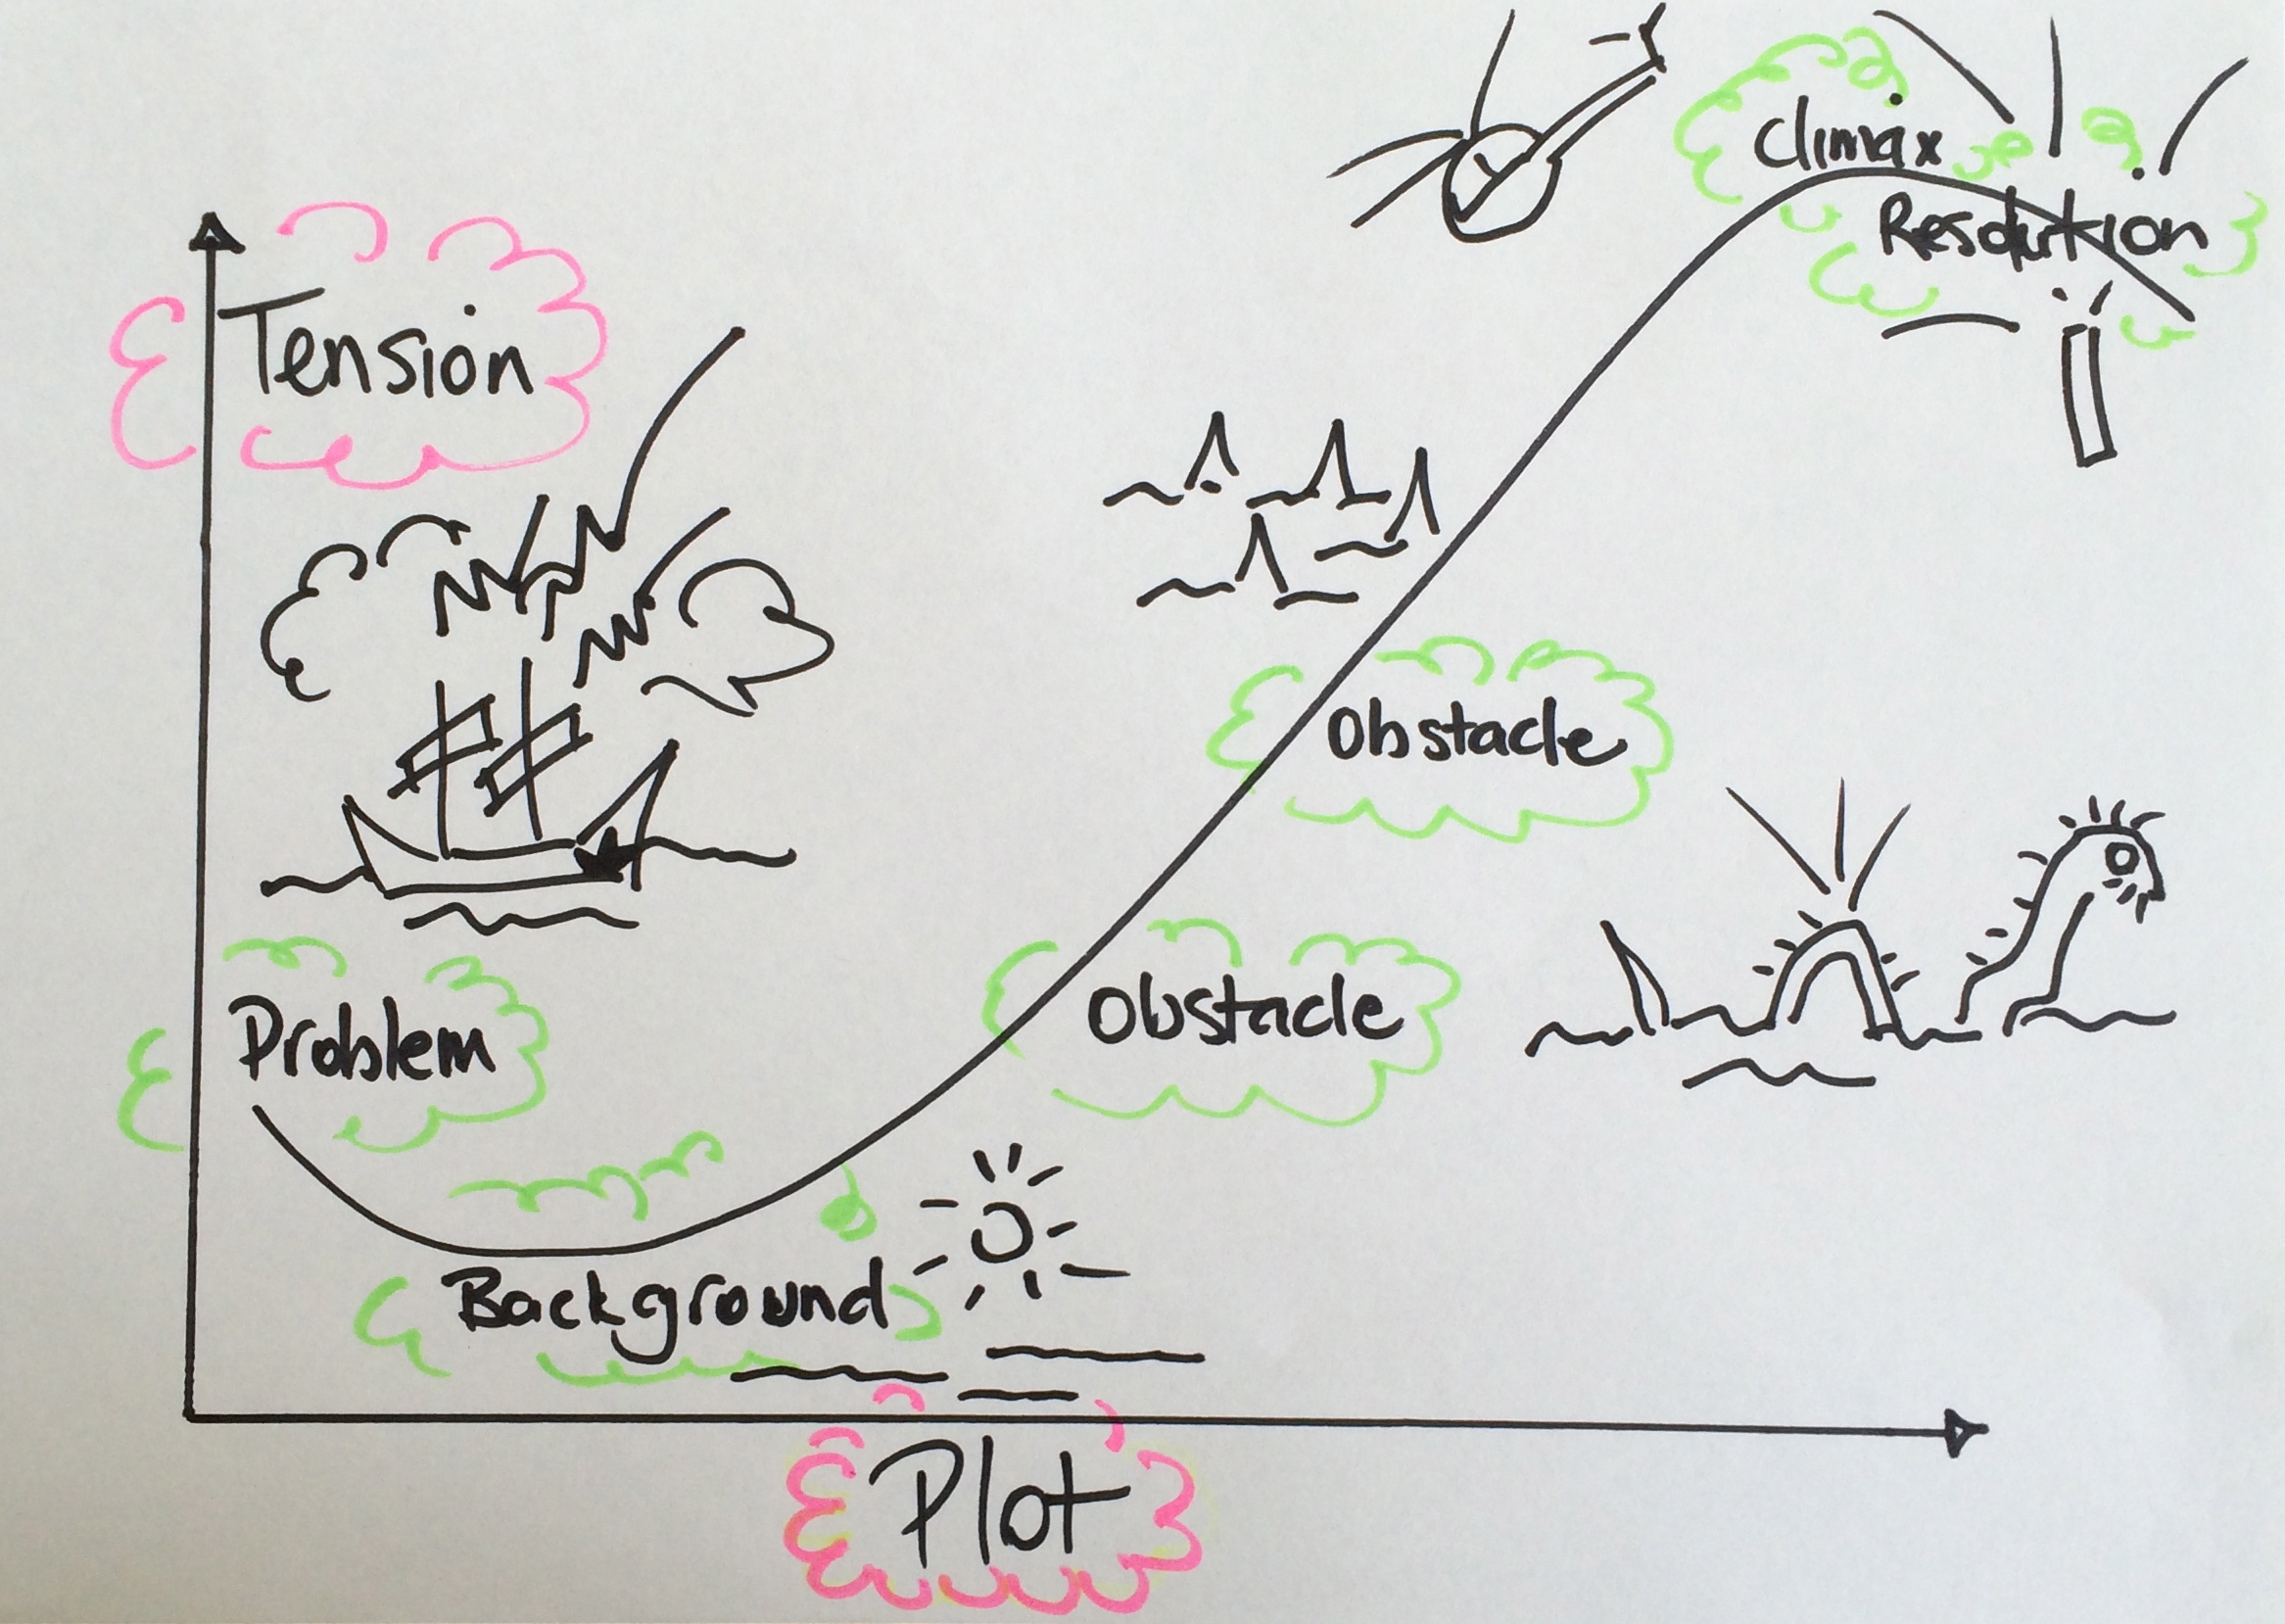 Climax
Resolution
Tension
Obstacle
Obstacle
Problem
Background
Plot